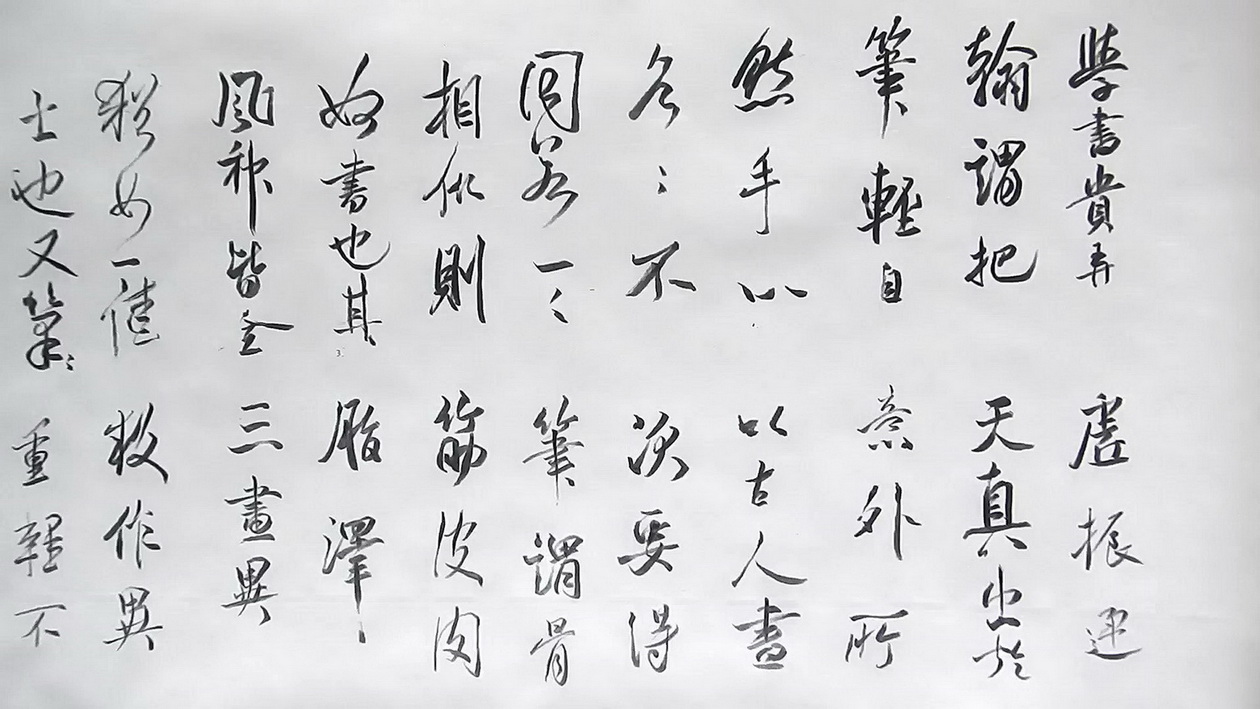 學書貴弄
翰謂把
筆輕自
然手心
虛振迅
天真出於
意外所
以古人書
各〻不
同若一〻
相似則
奴書也其
次要得
筆謂骨
筋皮肉
脂澤
風神皆全
猶如一佳
士也又筆〻
三畫異
故作異
重輕不